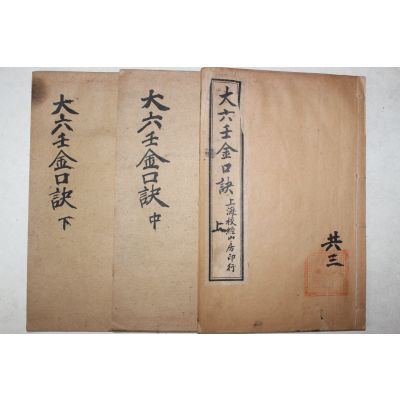 大六壬金口訣 上海校經山房印行
上
共三
大六壬金口訣 中
大六壬金口訣 下